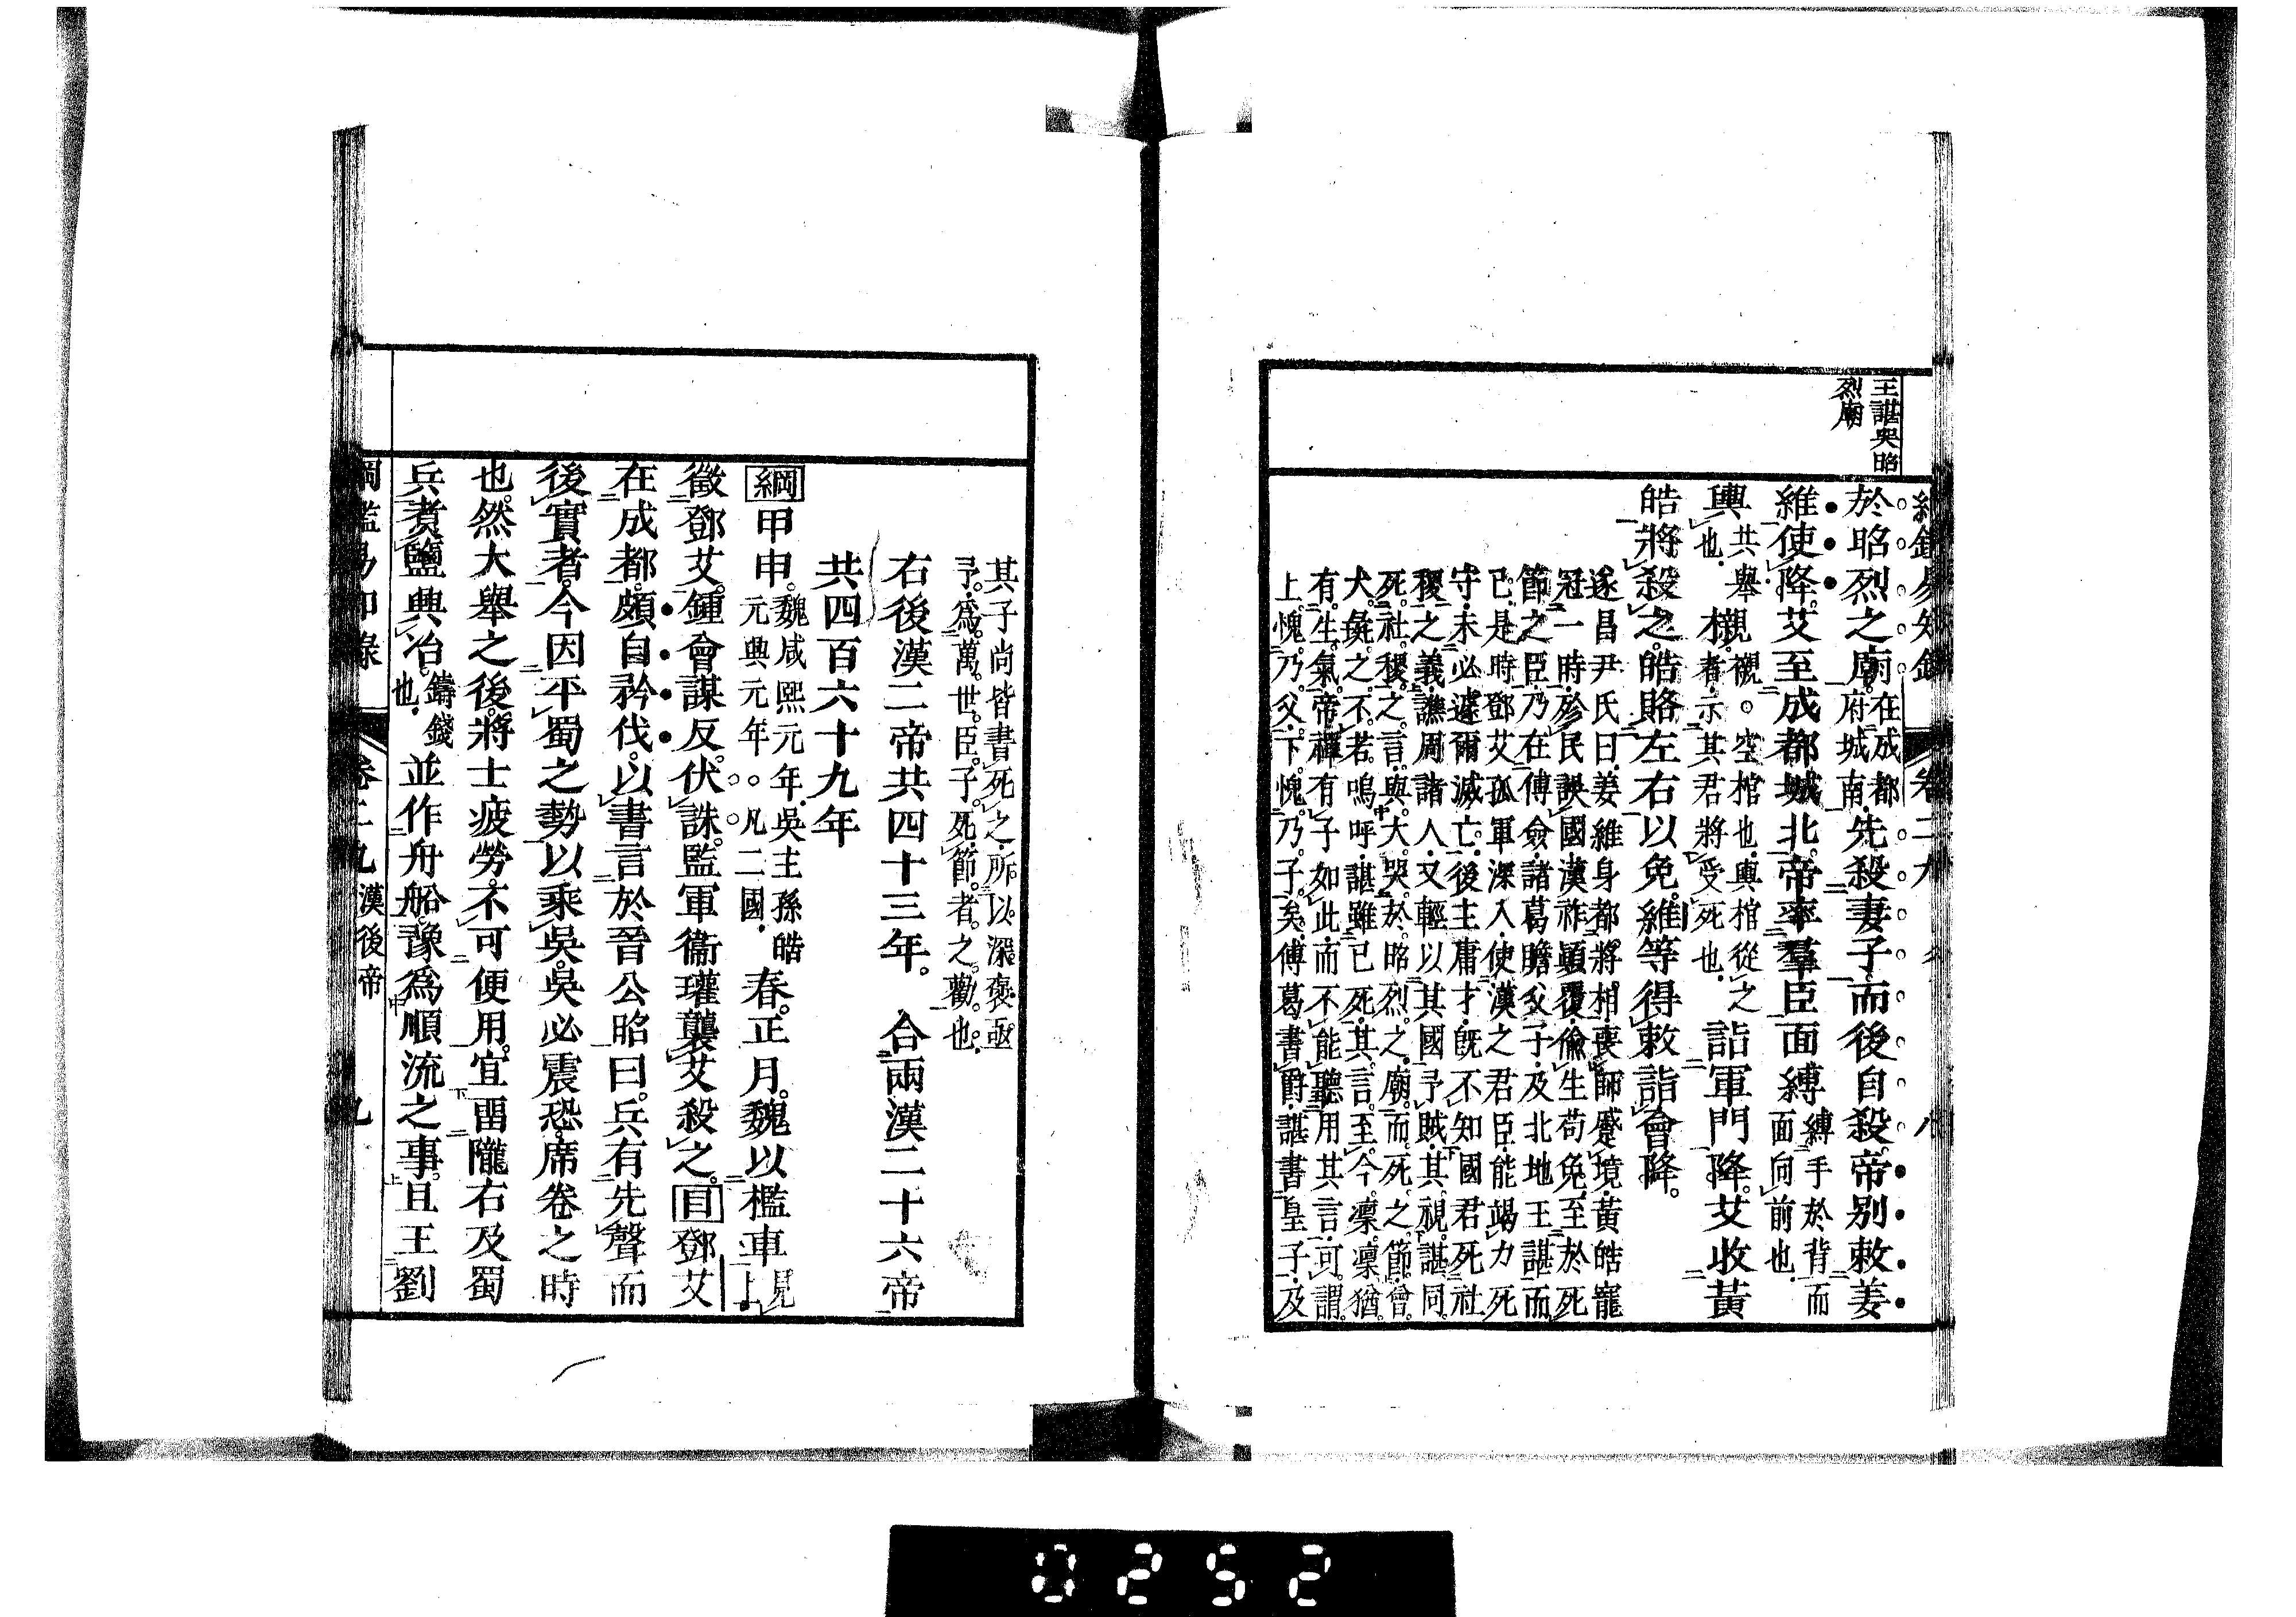 王諶哭昭
烈廟
卷二九 八
於昭烈之廟。在成都府城南。先殺妻子而後自殺。帝別敕姜
維使降。艾至成都城北。帝率羣臣面縛縛手於背而面向前也。
輿共舉也。櫬櫬。空棺也。輿棺從之者。示其君將受死也。詣軍門降。艾收黃
皓將殺之。皓賂左右以免。維等得敕詣會降。
遂昌尹氏曰。姜維身都將相。喪師蹙境。黃皓寵
冠一時。殄民誤國。漢祚顚覆。偷生苟免。至於死
節之臣。乃在傅僉諸葛瞻父子。及北地王諶而
已。是時鄧艾孤軍深入。使漢之君臣。能竭力死
守。未必遽爾滅亡。後主庸才。旣不知國君死社
稷之義。譙周諸人。又輕以其國予賊。其視諶同
死社稷之言。與大哭於昭烈之廟。而死之節。曾
犬彘之不若。嗚呼。諶雖已死。其言至今凜凜猶
有生氣。帝禪有子如此。而不能聽用其言。可謂
上愧乃父。下愧乃子矣。傅葛書爵。諶書皇子。及
其子尚皆書死之。所以深褒亟
予。爲萬世臣子死節者之勸也。
右後漢二帝共四十三年。 合兩漢二十六帝
共四百六十九年
綱甲申。魏咸熙元年。吳主孫皓元興元年。。凡二國。春。正月。魏以檻車見上
徵鄧艾。鍾會謀反。伏誅。監軍衞瓘襲艾殺之。目鄧艾
在成都。頗自矜伐。以書言於晉公昭曰。兵有先聲而
後實者。今因平蜀之勢以乘吳。吳必震恐。席卷之時
也。然大舉之後。將士疲勞。不可便用。宜畱隴右及蜀
兵煮鹽興冶。鑄錢也。並作舟船。豫爲順流之事。且王劉
綱鑑易知錄 卷二九 漢後帝 九
0252